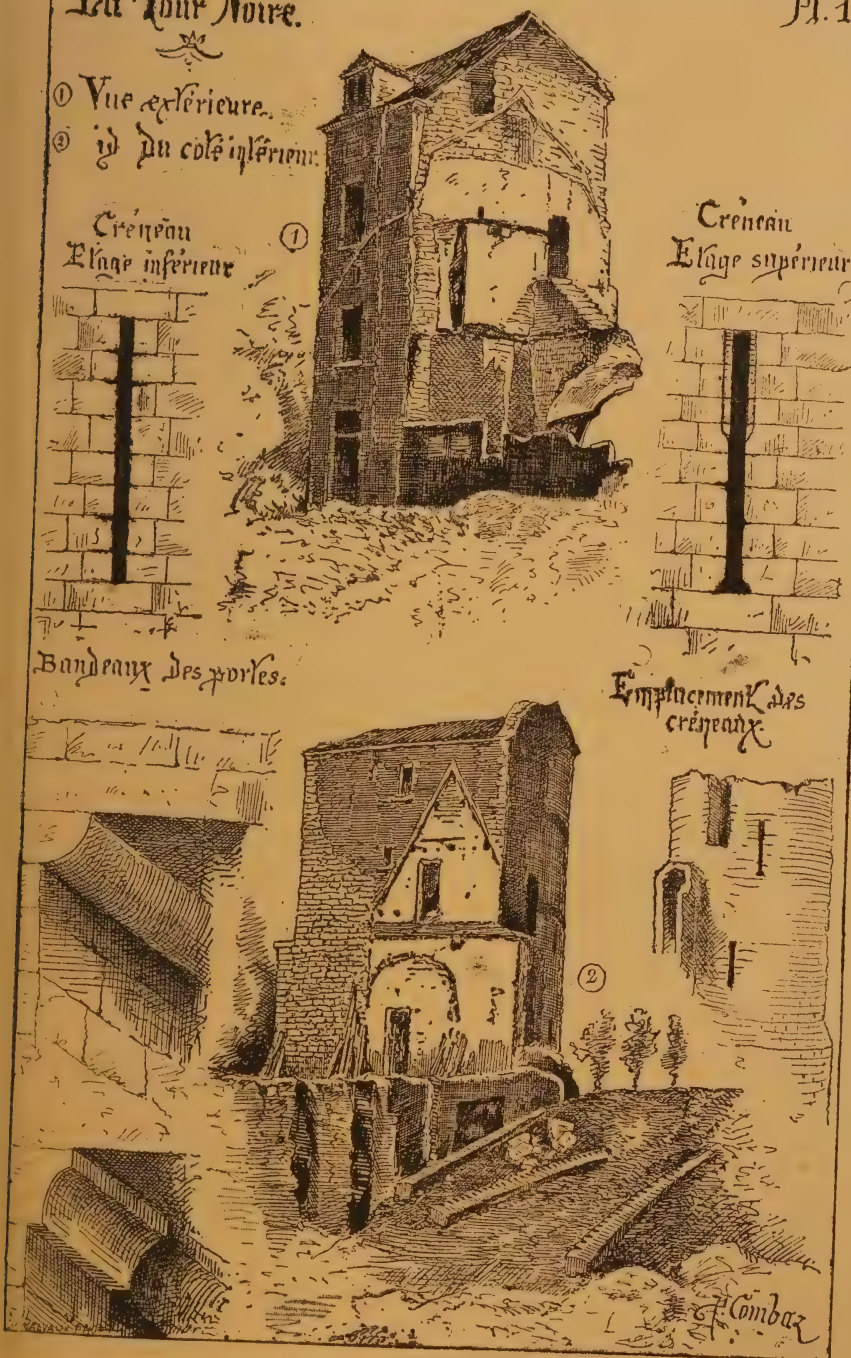 La Tour Noire.
Pl. 1
① Vue extérieure.
② id du coté intérieur.
Créneau
Etage inférieur
①
Créneau
Etage supérieur
Bandeaux des portes.
Emplacement des
créneaux.
②
P Combaz